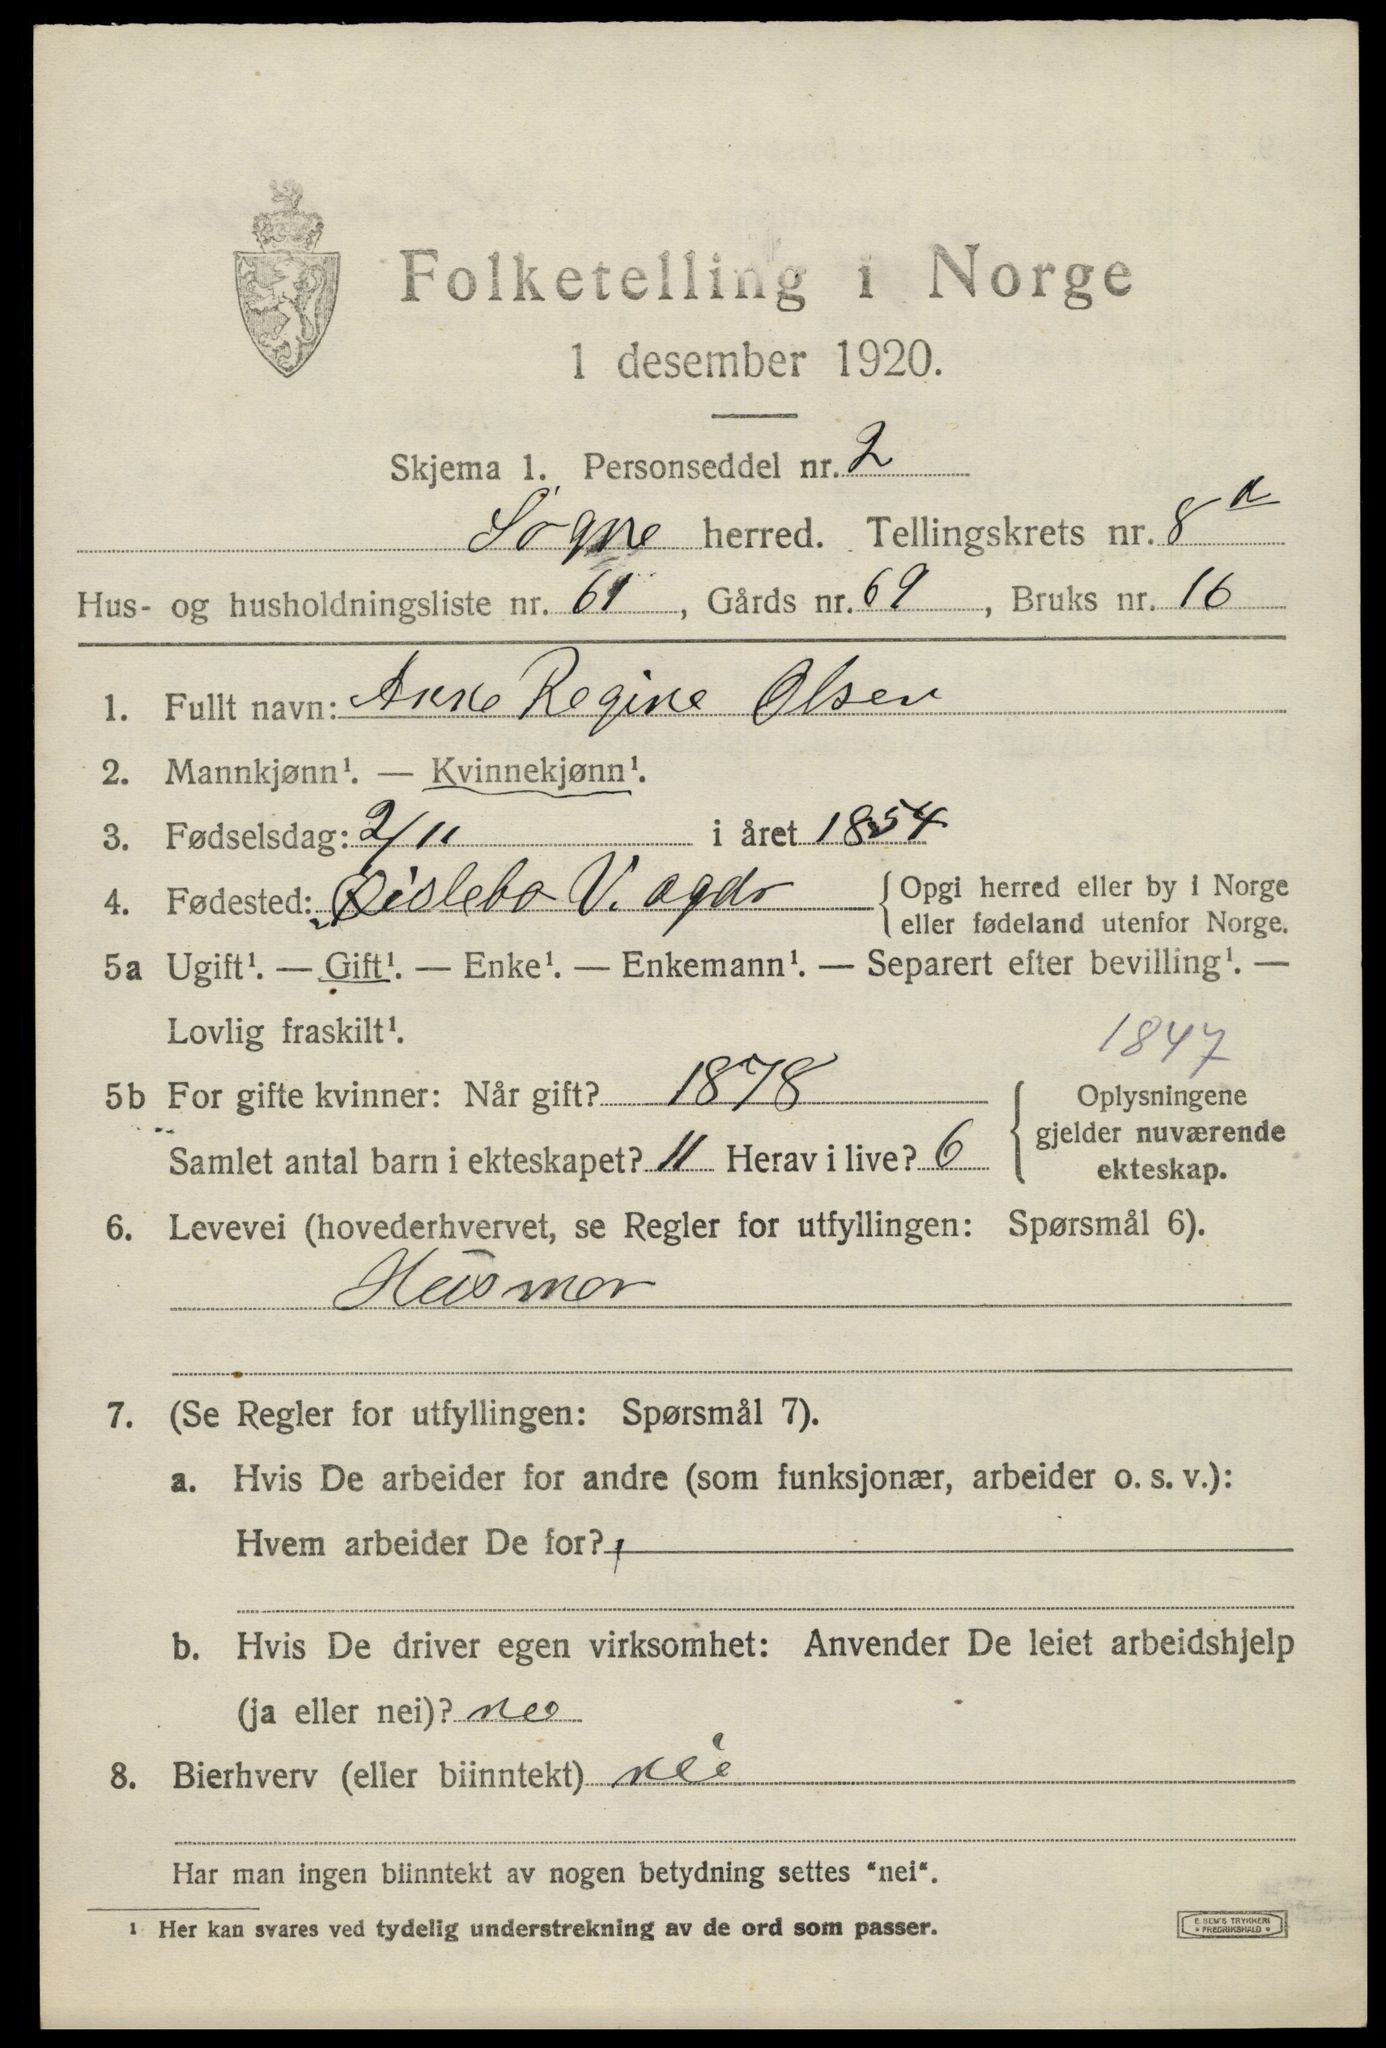 Folketelling i Norge
1 desember 1920.
Skjema 1. Personseddel nr. 2
Søgne herred. Tellingskrets nr. 8 a
Hus- og husholdningsliste nr. 61, Gårds nr. 69, Bruks nr. 16
1. Fullt navn: Anne Regine Olsen
2. Mannkjønn¹. — Kvinnekjønn¹.
3. Fødselsdag: 2/11 i året 1854
4. Fødested: Øislebø V. agdr { Opgi herred eller by i Norge
eller fødeland utenfor Norge.
5a Ugift¹. — Gift¹. — Enke¹. — Enkemann¹. — Separert efter bevilling¹. —
Lovlig fraskilt¹.
1847
5b For gifte kvinner: Når gift? 1878
Samlet antal barn i ekteskapet? 11 Herav i live? 6
{ Oplysningene
gjelder nuværende
ekteskap.
6. Levevei (hovederhvervet, se Regler for utfyllingen: Spørsmål 6).
Husmor
7. (Se Regler for utfyllingen: Spørsmål 7).
a. Hvis De arbeider for andre (som funksjonær, arbeider o. s. v.):
Hvem arbeider De for?
b. Hvis De driver egen virksomhet: Anvender De leiet arbeidshjelp
(ja eller nei)? nei
8. Bierhverv (eller biinntekt) nei
Har man ingen biinntekt av nogen betydning settes "nei".
¹ Her kan svares ved tydelig understrekning av de ord som passer.
E. SEM'S TRYKKERI
• FREDRIKSHALD •